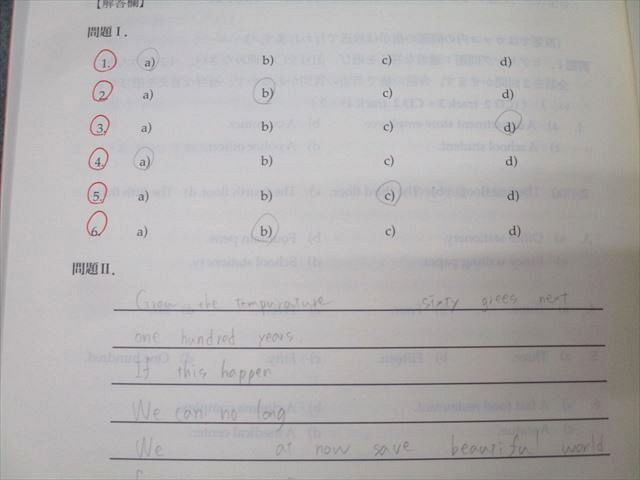 【解答欄】
問題Ⅰ.
1. a) b) c) d)
2. a) b) c) d)
3. a) b) c) d)
4. a) b) c) d)
5. a) b) c) d)
6. a) b) c) d)
問題Ⅱ.
Grow the tempurature sixty grees next
one hundred years.
If this happen
We can no long
We at now save beautiful world